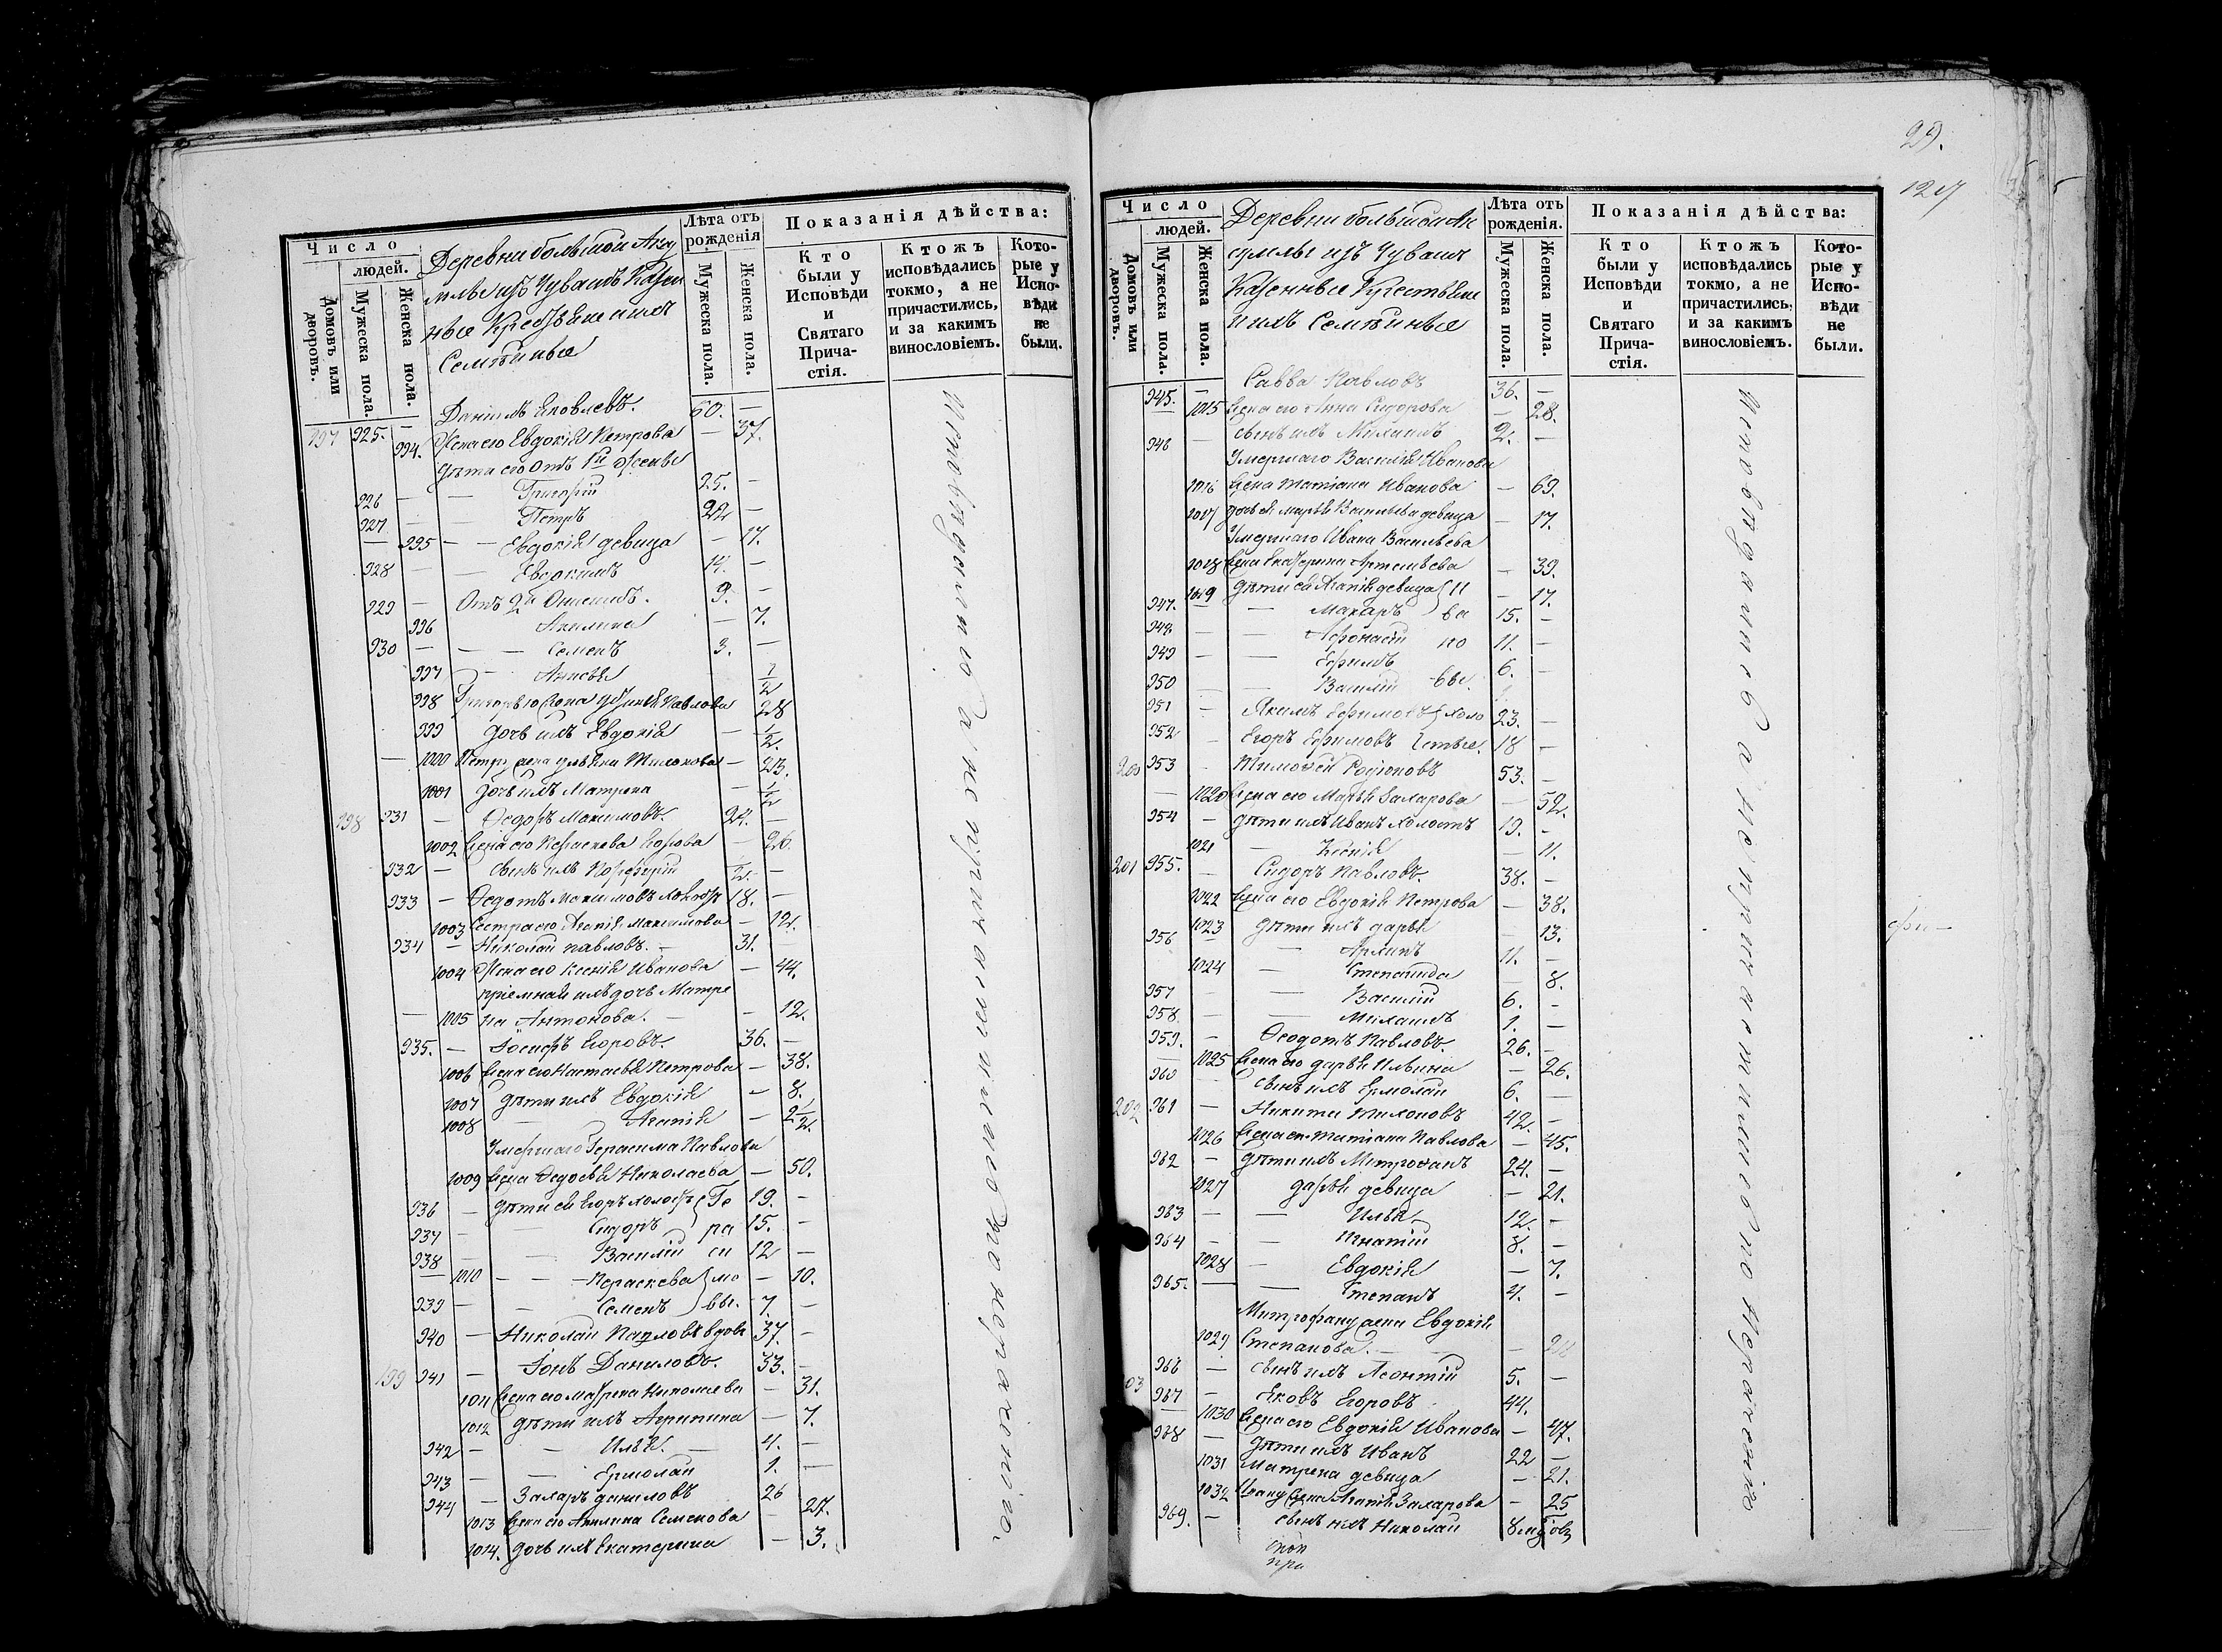 Число
людей.
Домовъ или дворовъ.
Мужеска пола.
Женска пола.
Деревни большой Аку
млы изъ Чувашъ Казен
ные Крестьяне и ихъ
Семейные
Лѣта отъ рожденія
Мужеска пола.
Женска пола.
Показанія дѣйства:
Кто были у Исповѣди и Святаго Прича-стія.
Ктожъ исповѣдались токмо, а не причастились, и за какимъ винословіемъ.
Кото-рые у Испо-вѣди не были.
197 925. — Даніилъ Яковлевъ. 60. —
994. Жена его Евдокія Петрова — 37.
дѣти его отъ 1й жены
926 — — Григорій 25. —
927 — — Петръ 22 —
— 995 — — Евдокія девица — 17.
928 — — Евдокимъ 14. —
929 — Отъ 2й Онисимъ. 9. —
996 Акилина — 7.
930 — — — Семенъ 3. —
997 — Анисья 1/2
998 Григорью жена Устинья Павлова 28
999 дочь ихъ Евдокія — 1/2.
— 1000 Петру жена Ульяна Тихонова — 23.
1001 дочь ихъ Матрена — 1/2
198 931 — Ѳедоръ Максимовъ. 24. —
1002 жена его Пераскова Егорова — 26.
932 — сынъ ихъ Порфирій 1/2. —
933 — Ѳедотъ Максимовъ холостъ 18. —
1003 Сестра его Агапія Максимова — 12.
934 — Николай Павловъ. — 31.
1004 Жена его Ксенія Иванова — 44.
пріемная ихъ дочь Матре
— 1005 на Антонова. — — 12.
935. — Іосифъ Егоровъ. 36. —
1006 жена его Настасья Петрова — 38.
1007 дѣти ихъ Евдокія — 8.
1008 — Агапія — 2 1/2.
Умершаго Герасима Павлова
1009 жена Ѳедосья Николаева — 50.
936 — дѣти ея Егоръ холостъ Ге 19. —
937 — — Сидоръ ра 15. —
938 — — Василій си 12 —
— 1010 — — Пераскева мо — 10.
939 — — Семенъ вы. 7. —
940 — Николай Павловъ вдовъ 37. —
199 941 — Іонъ Даниловъ. 33. —
1011 жена его Матрена Николаева — 31.
1012 дѣти ихъ Агрипина — 7.
942 — — Илья. — 4. —
943 — — Ермолай 1. —
944 — Захаръ Даниловъ 26
1013 жена его Акилина Семенова — 27.
1014. дочь ихъ Екатерина — 3.
Исповѣдались а не причастились по нераскаянію
29.
127
Число
людей.
Домовъ или дворовъ.
Мужеска пола.
Женска пола.
Деревни большой Ак
сумлы изъ Чувашъ
Казенные Крестьяне
и ихъ Семейные
Лѣта отъ рожденія.
Мужеска пола.
Женска пола.
Показанія дѣйства:
Кто были у Исповѣди и Святаго Прича-стія.
Ктожъ исповѣдались токмо, а не причастились, и за какимъ винословіемъ.
Кото-рые у Испо-вѣди не были.
945. — Савва Павловъ 36. —
1015 жена его Анна Сидорова — 28.
946 — сынъ ихъ Михаилъ 2. —
Умершаго Василія Иванова
1016 жена Татіана Иванова — 69.
1017 дочь ея Марья Васильева девица — 17.
Умершаго Ивана Васильева
1018 жена Екатерина Артемьева — 39.
1019 дѣти ея Агапія девица И — 17.
947. — Макаръ ва 15. —
948 — — Афонасій но 11. —
949 — — Ефимъ 6. —
950 — — Василій вы.
951 — Якимъ Ефимовъ холо 23. —
952 — Егоръ Ефимовъ стые. 18 —
200 953 — Тимоѳей Родіоновъ 53. —
— 1020 жена его Марья Захарова — 52.
954 — дѣти ихъ Иванъ холостъ 19. —
1021 — Ксенія — 11.
201 955. — Сидоръ Павловъ. 38. —
1022 жена его Евдокія Петрова — 38.
1023 дѣти ихъ Дарья — 13.
956 — — 11. —
1024 — Степанида — 8.
957 — — Василій 6. —
958 — — Михаилъ 1. —
959. — Ѳеодотъ Павловъ. 26. —
— 1025 жена его Дарья Ильина — 26.
960 — сынъ ихъ Ермолай 6. —
202 961 — Никита Тихоновъ 42. —
1026 жена его Татіана Павлова — 45.
962 — дѣти ихъ Митрофанъ 24. —
1027 Дарья девица — 21.
963 — — Илья 12. —
964 — — Игнатій 8. —
1028 — Евдокія — 7.
965. — — Степанъ 4. —
Митрофану жена Евдокія
1029 Степанова. — —
966 — сынъ ихъ Леонтій 5. —
203 967 — Яковъ Егоровъ 44.
— 1030 жена его Евдокія Иванова — 47.
968 — дѣти ихъ Иванъ 22 —
1031 Матрена девица — 21.
1032 Ивану жена Агапія Захарова — 25
969. — сынъ ихъ Николай
Исповѣдались а не причастились по нераскаянію